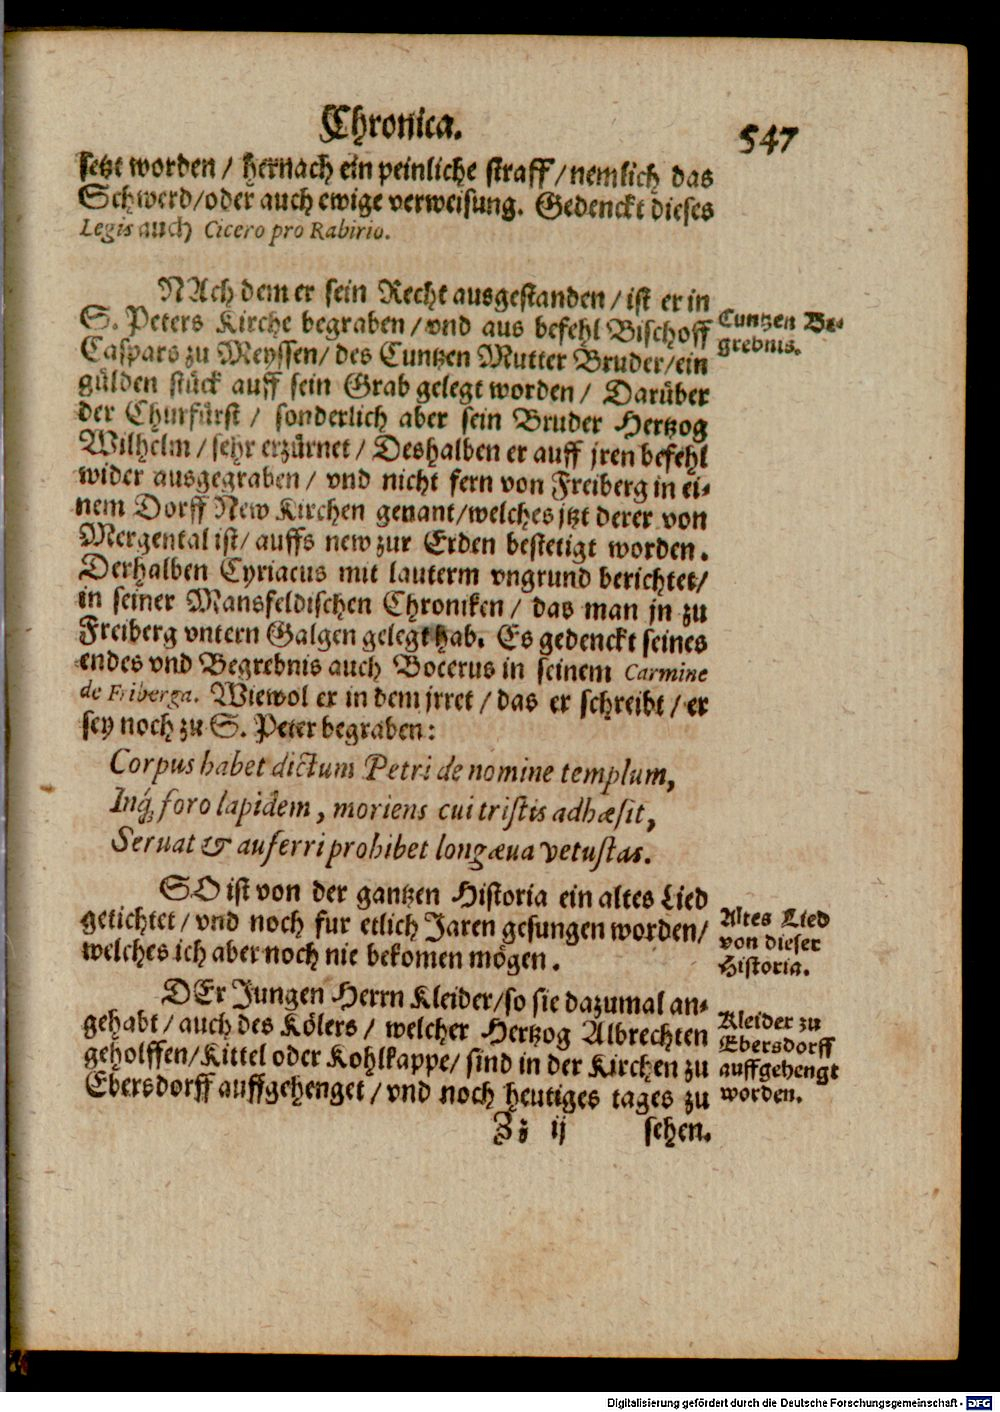 Chronica.
547
setzt worden / hernach ein peinliche straff / nemlich das
Schwerd / oder auch ewige verweisung. Gedenckt dieses
Legis auch Cicero pro Rabirio.
NAch dem er sein Recht ausgestanden / ist er in
S. Peters Kirche begraben / vnd aus befehl Bischoff
Caspars zu Meyssen / des Cuntzen Mutter Bruder / ein
gülden stück auff sein Grab gelegt worden / Darüber
der Churfürst / sonderlich aber sein Bruder Hertzog
Wilhelm / sehr erzürnet / Deshalben er auff jren befehl
wider ausgegraben / vnd nicht fern von Freiberg in ei-
nem Dorff New Kirchen genant / welches jtzt derer von
Mergental ist / auffs new zur Erden bestetigt worden.
Derhalben Cyriacus mit lauterm vngrund berichtet /
in seiner Mansfeldischen Chroniken / das man jn zu
Freiberg vntern Galgen gelegt hab. Es gedenckt seines
endes vnd Begrebnis auch Bocerus in seinem Carmine
de Friberga. Wiewol er in dem jrret / das er schreibt / er
sey noch zu S. Peter begraben:
Corpus habet dictum Petri de nomine templum,
Inq́; foro lapidem, moriens cui tristis adhæsit,
Seruat & auferri prohibet longæua vetustas.
SO ist von der gantzen Historia ein altes Lied
getichtet / vnd noch fur etlich Jaren gesungen worden /
welches ich aber noch nie bekomen mögen.
DEr Jungen Herrn Kleider / so sie dazumal an-
gehabt / auch des Kölers / welcher Hertzog Albrechten
geholffen / Kittel oder Kohlkappe / sind in der Kirchen zu
Ebersdorff auffgehenget / vnd noch heutiges tages zu
Zz ij sehen.
Cuntzen Be-
grebnis.
Altes Lied
von dieser
Historia.
Kleider zu
Ebersdorff
auffgehengt
worden.
Digitalisierung gefördert durch die Deutsche Forschungsgemeinschaft - DFG